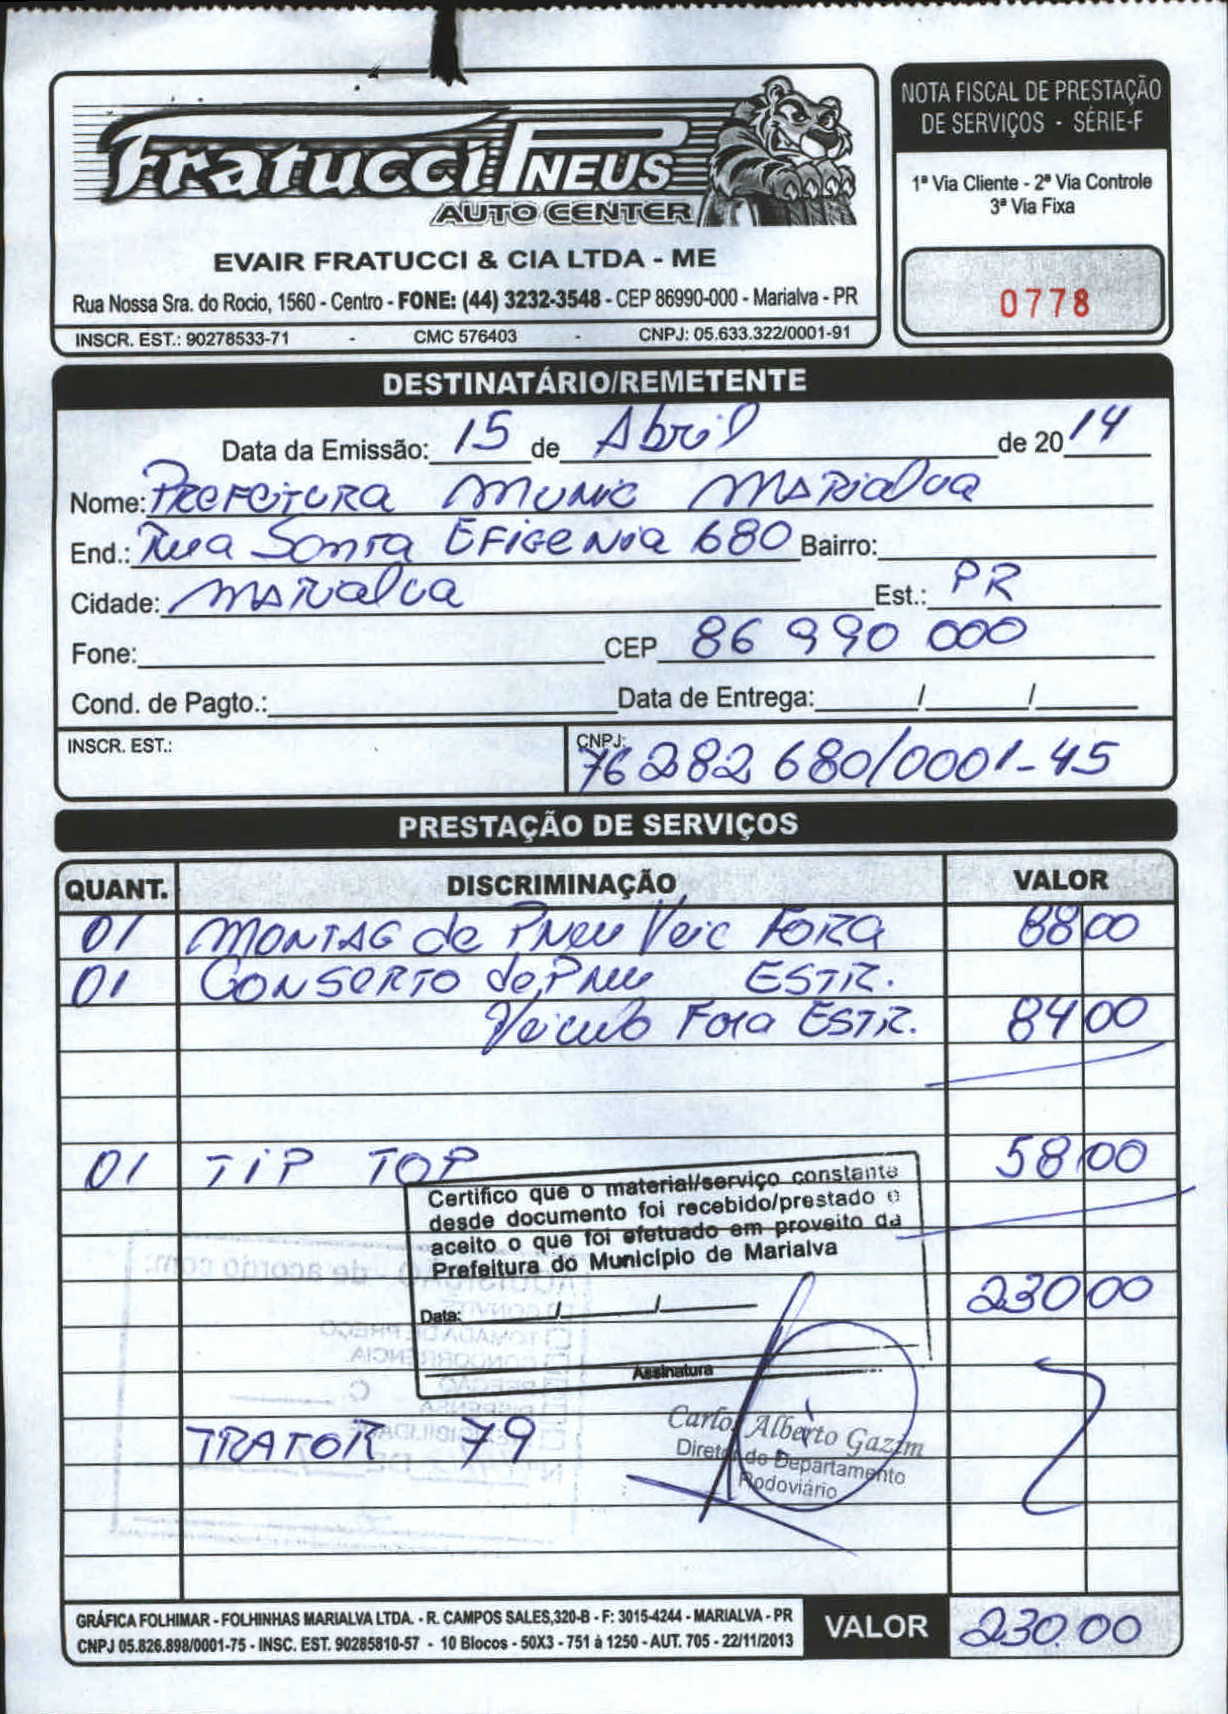 Fratucci PNEUS
AUTO CENTER
EVAIR FRATUCCI & CIA LTDA - ME
Rua Nossa Sra. do Rocio, 1560 - Centro - FONE: (44) 3232-3548 - CEP 86990-000 - Marialva - PR
INSCR. EST.: 90278533-71 - CMC 576403 - CNPJ: 05.633.322/0001-91
NOTA FISCAL DE PRESTAÇÃO
DE SERVIÇOS - SÉRIE-F
1ª Via Cliente - 2ª Via Controle
3ª Via Fixa
0778
DESTINATÁRIO/REMETENTE
Data da Emissão: 15 de Abril de 2014
Nome: PREFEITURA MUNIC MARIALVA
End.: Rua Santa EFIGENIA 680 Bairro:
Cidade: MARIALVA Est.: PR
Fone: CEP 86 990 000
Cond. de Pagto.: Data de Entrega: / /
INSCR. EST.: CNPJ: 76 282 680/0001-45
PRESTAÇÃO DE SERVIÇOS
QUANT. DISCRIMINAÇÃO VALOR
01 MONTAG de PNeu Veic FORA 88 00
01 CONSERTO de PNeu ESTR.
Veiculo Fora ESTR. 84 00
01 TIP TOP 58 00
Certifico que o material/serviço constante
desde documento foi recebido/prestado e
aceito o que foi efetuado em proveito da
Prefeitura do Município de Marialva
230 00
Data: / /
Assinatura
AQUISIÇÃO - de acordo com:
CONVITE
TOMADA DE PREÇO
CONCORRÊNCIA
PREGÃO
DISPENSA
INEXIGIBILIDADE
TRATOR 79
Carlos Alberto Gazim
Diretor de Departamento
Rodoviário
GRÁFICA FOLHIMAR - FOLHINHAS MARIALVA LTDA. - R. CAMPOS SALES,320-B - F: 3015-4244 - MARIALVA - PR
CNPJ 05.826.898/0001-75 - INSC. EST. 90285810-57 - 10 Blocos - 50X3 - 751 à 1250 - AUT. 705 - 22/11/2013
VALOR 230.00